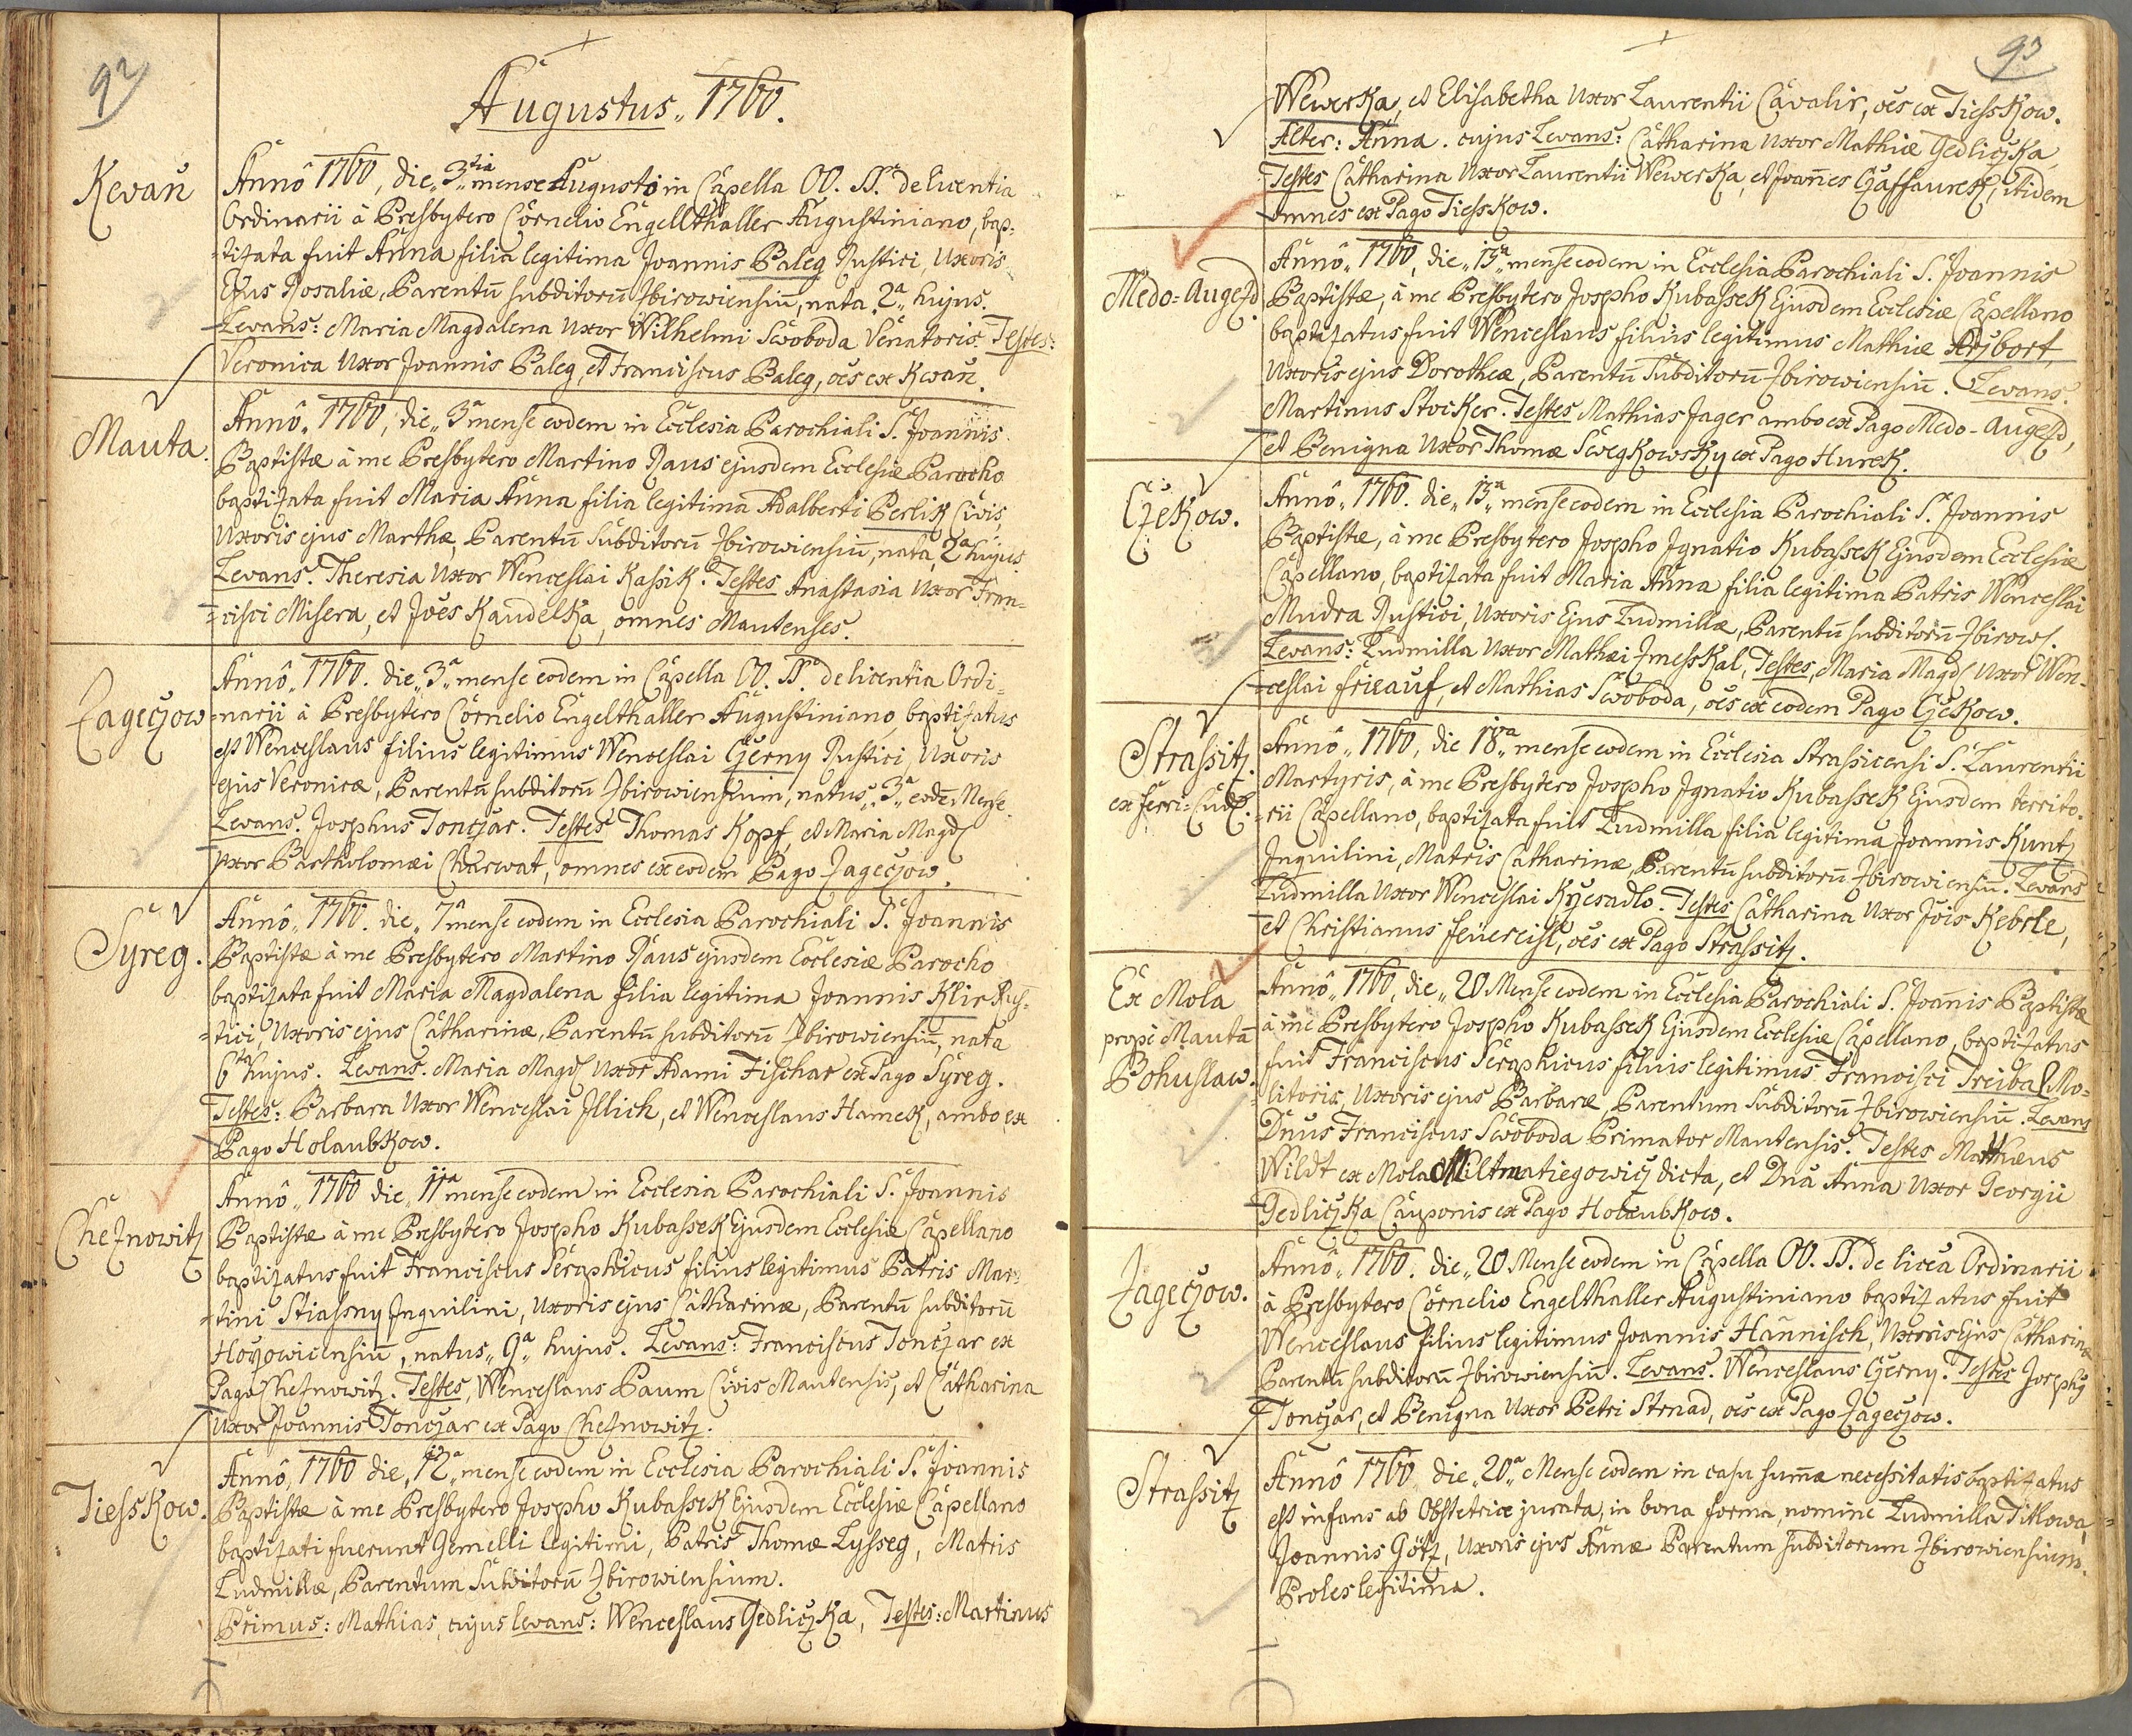 92
Augustus„ 1760.
Kevañ
Annô 1760, die„ 3tia mense Augusto in Capella OO. SS. de licentia
Ordinarii à Presbytero Cornelio Engellthaller Augustiniano, bap-
-tizata fuit Anna filia legitima Joannis Paleg Rustici, Uxoris
Ejus Rosaliæ, Parentū subditorū Zbirowiensiū, nata 2a„ hujus.
Levans: Maria Magdalena Uxor Wilhelmi Swoboda Venatoris. Testes:
Veronica Uxor Joannis Paleg, et Franciscus Paleg, oēs ex Kwañ.
Mauta.
Annô„ 1760, die„ 3a mense eodem in Ecclesia Parochiali S. Joannis
Baptistæ à me Presbytero Martino Raus ejusdem Ecclesiæ Parocho
baptizata fuit Maria Anna filia legitima Adalberti Perlik Civis,
Uxoris ejus Marthæ, Parentū subditorū Zbirowiensiū, nata 2a hujus
Levans. Theresia Uxor Wenceslai Kassik. Testes Anastasia Uxor Fran-
-cisci Misera, et Joēs Kaudelka, omnes Mautenses.
Zageczow
Annô„ 1760. die„ 3a„ mense eodem in Capella OO. SS. de licentia Ordi-
-narii à Presbytero Cornelio Engelthaller Augustiniano, baptizatus
est Wenceslaus filius legitimus Wenceslai Czerny Rustici, Uxoris
ejus Veronicæ, Parentū subditorū Zbirowiensium, natus„ 3a eodē Mense.
Levans. Josephus Tonczar. Testes Thomas Kopf, et Maria Magd.
uxor Bartholomæi Charwat, omnes ex eodem Pago Zageczow.
Syreg.
Annô„ 1760. die„ 7a mense eodem in Ecclesia Parochiali S. Joannis
Baptistæ à me Presbytero Martino Raus ejusdem Ecclesiæ Parocho
baptizata fuit Maria Magdalena filia legitima Joannis Klir Rus-
-tici, Uxoris ejus Catharinæ, Parentū subditorū Zbirowiensiū, nata
6ta hujus. Levans. Maria Magd. Uxor Adami Fischar ex Pago Syreg.
Testes: Barbara Uxor Wenceslai Illich, et Wenceslaus Hamek, ambo ex
Pago Holaubkow.
Cheznowitz
Annô„ 1760 die„ 11a mense eodem in Ecclesia Parochiali S. Joannis
Baptistæ à me Presbytero Josepho Kubassek Ejusdem Ecclesiæ Capellano
baptizatus fuit Franciscus Seraphicus filius legitimus Patris Mar-
-tini Stiassny Inquilini, Uxoris ejus Catharinæ, Parentū subditorū
Hoŕowicensiū, natus„ 9a„ hujus. Levans: Franciscus Tonczar ex
Pago Cheznowitz. Testes, Wenceslaus Paum Civis Mautensis, et Catharina
Uxor Joannis Tonczar ex Pago Cheznowitz.
Tiesskow.
Annô„ 1760 die„ 12a„ mense eodem in Ecclesia Parochiali S. Joannis
Baptistæ à me Presbytero Josepho Kubassek Ejusdem Ecclesiæ Capellano
baptizati fuerunt Gemelli legitimi, Patris Thomæ Lysseg, Matris
Ludmillæ, Parentum Subditorū Zbirowiensium.
Primus: Mathias, cujus Levans: Wenceslaus Gedliczka, Testes: Martinus
93
Wewerka, et Elisabetha Uxor Laurentii Cavalir, oēs ex Tiesskow.
Alter: Anna. cujus Levans: Catharina Uxor Mathiæ Gedliczka
Testes Catharina Uxor Laurentii Wewerka, et Joañes Czaffaurek, itidem
omnes ex Pago Tiesskow.
Medo-Augezd.
Annô„ 1760, die„ 13a„ mense eodem in Ecclesia Parochiali S. Joannis
Baptistæ, à me Presbytero Josepho Kubassek Ejusdem Ecclesiæ Capellano
baptizatus fuit Wenceslaus filius legitimus Mathiæ Krzbort,
Uxoris ejus Dorotheæ, Parentū Subditorū Zbirowiensiū. Levans.
Martinus Stocker. Testes Mathias Jager ambo ex Pago Medo-Augezd,
et Benigna Uxor Thomæ Swegkowsky ex Pago Hurek.
Czekow.
Annô„ 1760. die„ 13a„ mense eodem in Ecclesia Parochiali S. Joannis
Baptistæ, à me Presbytero Josepho Ignatio Kubassek Ejusdem Ecclesiæ
Capellano, baptizata fuit Maria Anna filia legitima Patris Wenceslai
Mudra Rustici, Uxoris Ejus Ludmillæ, Parentū subditorū Zbirow.
Levans: Ludmilla Uxor Mathæi Zmesskal, Testes, Maria Magd. Uxor Wen-
-ceslai Frieauf, et Mathias Swoboda, oēs ex eodem Pago Czekow.
Strassitz.
ex Ferri-Cud.
Annô„ 1760, die 18a„ mense eodem in Ecclesia Strassicensi S. Laurentii
Martyris, à me Presbytero Josepho Ignatio Kubassek Ejusdem territo-
-rii Capellano, baptizata fuit Ludmilla filia legitima Joannis Kuntz
Inquilini, Matris Catharinæ, Parentū subditorū Zbirowiensiū. Levans
Ludmilla Uxor Wenceslai Krzesadlo. Testes Catharina Uxor Jōis Keberle,
et Christianus Feuereisl, oēs ex Pago Strassitz.
Ex Mola
prope Mautā
Bohuslaw.
Annô„ 1760, die„ 20 Mense eodem in Ecclesia Parochiali S. Joañis Baptistæ
à me Presbytero Josepho Kubassek Ejusdem Ecclesiæ Capellano, baptizatus
fuit Franciscus Seraphicus filius legitimus Francisci Treibal Mo-
-litoris, Uxoris ejus Barbaræ, Parentum Subditorū Zbirowiensiū. Levans
Dnus Franciscus Swoboda Primator Mautensis. Testes Matthæus
Wildt ex Mola Miltmatiegowicz dicta, et Dña Anna Uxor Georgii
Gedliczka Cauponis ex Pago Holaubkow.
Zageczow.
Annô„ 1760. die„ 20 Mense eodem in Capella OO. SS. de licēa Ordinarii
à Presbytero Cornelio Engelthaller Augustiniano baptizatus fuit
Wenceslaus filius legitimus Joannis Hannisch, Uxoris Ejus Catharinæ
Parentū subditorū Zbirowiensiū. Levans. Wenceslaus Czerny. Testes Josephus
Tonczar, et Benigna Uxor Petri Strnad, oēs ex Pago Zageczow.
Strassitz
Annô 1760 die„ 20a„ Mense eodem in casu sum̄æ necessitatis baptizatus
est infans ab Obstetrice jurata, in bona forma, nomine Ludmilla Titlowa,
Joannis Götz, Uxoris ejus Annæ Parentum subditorum Zbirowiensium.
Proles legitima.